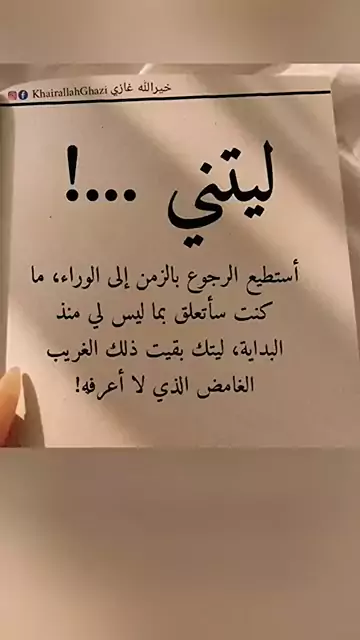 KhairallahGhazi خيرالله غازي
ليتني ....!
أستطيع الرجوع بالزمن إلى الوراء، ما
كنت سأتعلق بما ليس لي منذ
البداية، ليتك بقيت ذلك الغريب
الغامض الذي لا أعرفه!